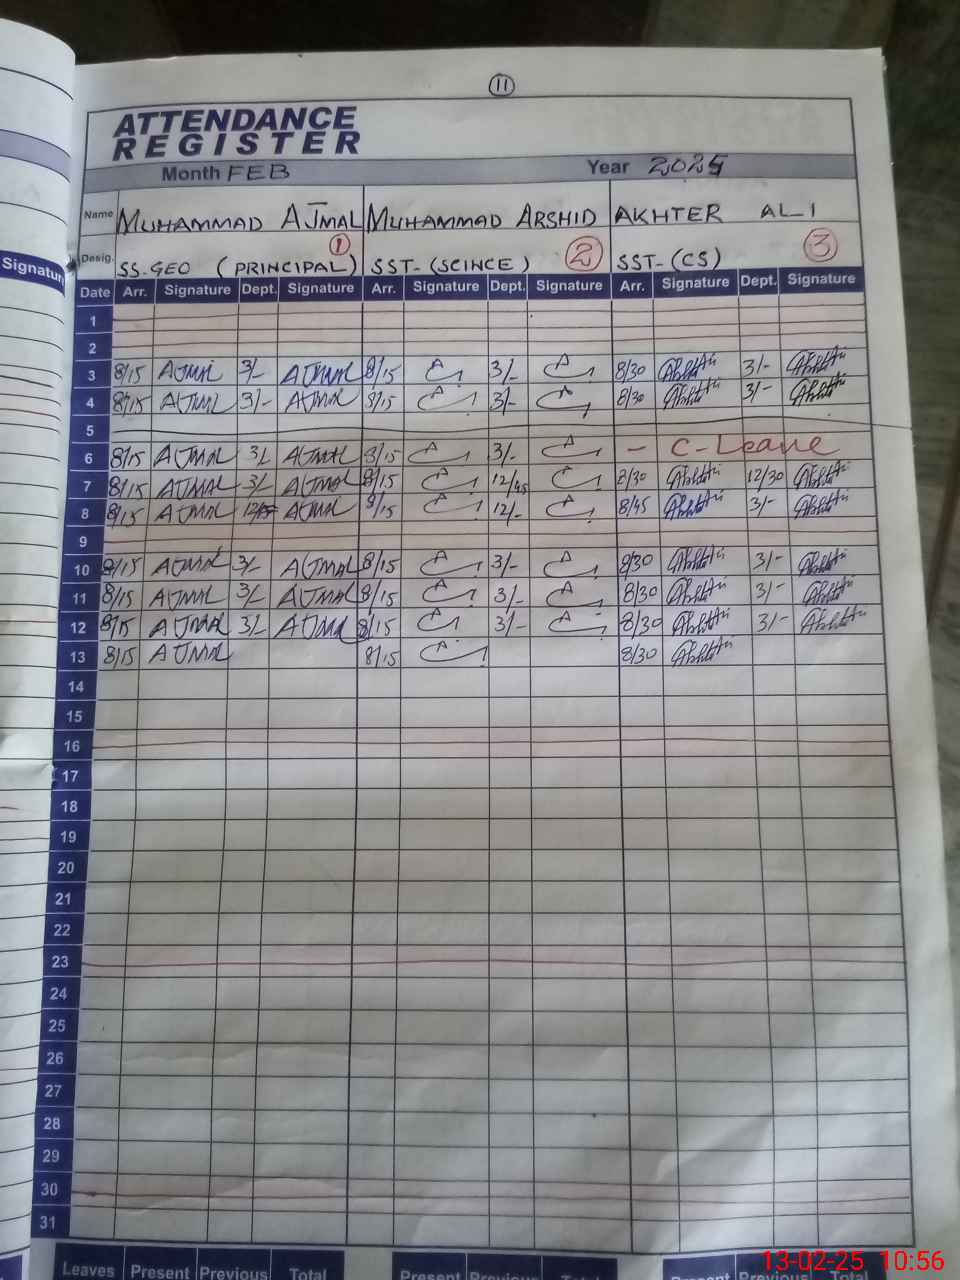 11
ATTENDANCE
REGISTER
Month FEB Year 2025
Name MUHAMMAD AJMAL MUHAMMAD ARSHID AKHTER ALI
Desig. SS-GEO (PRINCIPAL) 1 SST-(SCINCE) 2 SST-(CS) 3
Signature
Date Arr. Signature Dept. Signature Arr. Signature Dept. Signature Arr. Signature Dept. Signature
1
2
3 8/15 AJMAL 3/- AJMAL 8/15 A 3/- A 8/30 3/-
4 8/15 AJMAL 3/- AJMAL 8/15 A 3/- A 8/30 3/-
5
6 8/15 AJMAL 3/- AJMAL 8/15 A 3/- A - C-Leave
7 8/15 AJMAL 3/- AJMAL 8/15 A 12/45 A 8/30 12/30
8 8/15 AJMAL AJMAL 8/15 A 12/- A 8/45 3/-
9
10 8/15 AJMAL 3/- AJMAL 8/15 A 3/- A 8/30 3/-
11 8/15 AJMAL 3/- AJMAL 8/15 A 3/- A 8/30 3/-
12 8/15 AJMAL 3/- AJMAL 8/15 A 3/- A 8/30 3/-
13 8/15 AJMAL 8/15 A 8/30
14
15
16
17
18
19
20
21
22
23
24
25
26
27
28
29
30
31
Leaves Present Previous Total Present Previous Total Present Previous Total
13-02-25 10:56